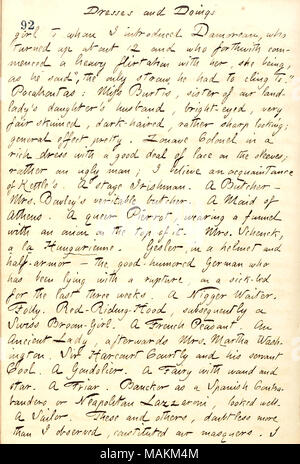 92
Dresses and Doings
girl to whom I introduced Damoreau, who
turned up at out 12 and who forthwith com-
menced a heavy flirtation with her, she being,
as he said, "the only straw he had to cling to."
Pocahontas: Miss Burtis, sister of our land-
lady's daughter's husband, bright-eyed, very
fair skinned, dark-haired, rather sharp looking,
general effect pretty. Zouave Colonel in a
rich dress with a good deal of lace on the sleeves;
rather an ugly man; I believe an acquaintance
of Kettle's. A stage Irishman. A Butcher—
Mrs. Bowley's veritable butcher. A Maid of
Athens. A queer Pierrot, wearing a funnel
with an onion on the top of it. Mrs. Schenck,
a la Hungarienne. Gesler, in a helmet and
half-armor — the good-humored German who
has been lying with a rupture, in a sick-bed
for the last three weeks. A Nigger Waiter.
Folly. Red-Riding-Hood, subsequently a
Swiss Broom-Girl. A French Peasant. An
Ancient Lady, afterwards Mrs. Martha Wash-
ington. Sir Harcourt Courtly and his servant
Cool. A Gondolier. A Fairy with wand and
star. A Friar. Bancker as a Spanish Contra-
bandero or Neapolitan Lazzaroni, looked well.
A Sailor. These and others, doubtless more
than I observed, constituted our masquers. I
alamy
Image ID: MAKM4M
www.alamy.com